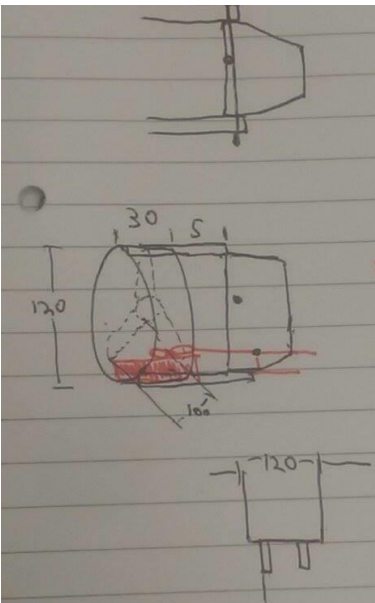 30 5
120
100
120